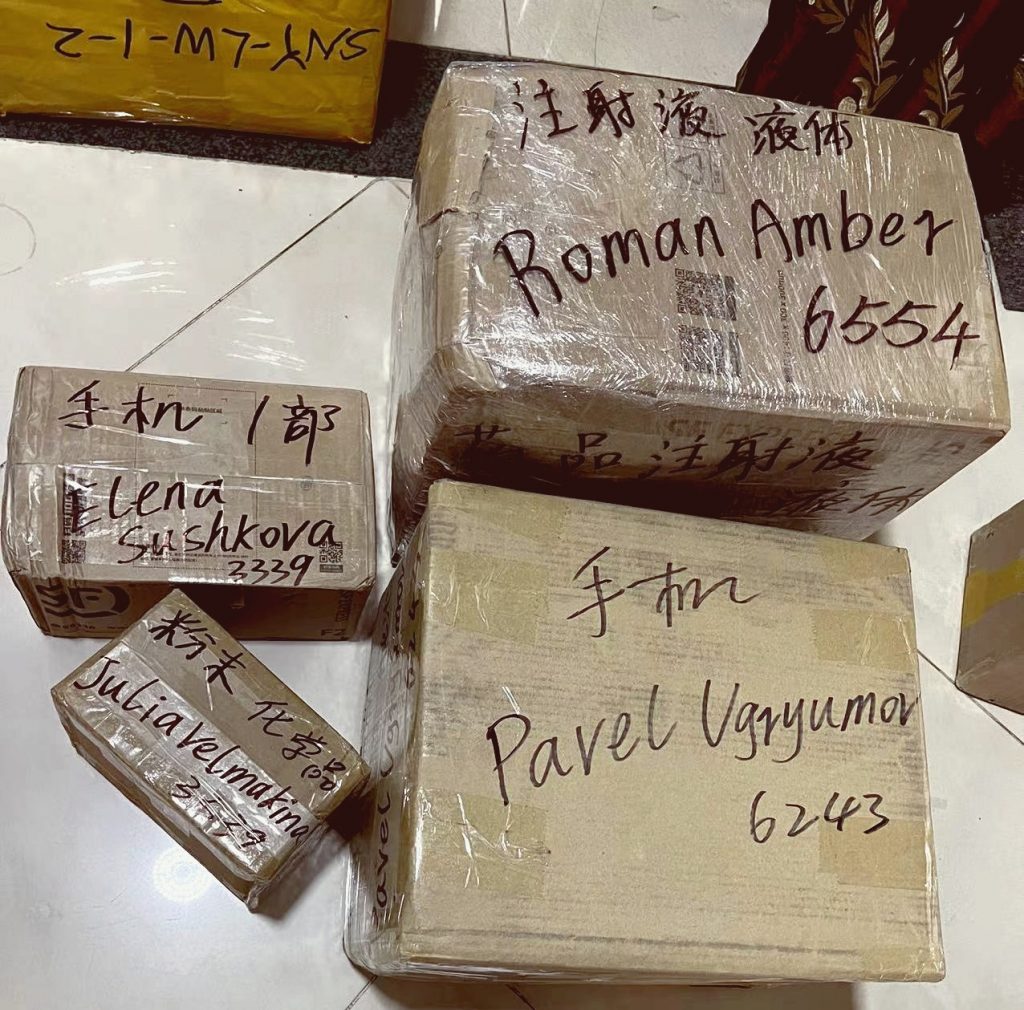 SNY-LW-1-2
注射液 液体
Roman Amber
6554
药品注射液
液体
手机 1部
Elena
Sushkova
3339
手机
Pavel Ugryumov
6243
粉末 化学品
Julia velmakina